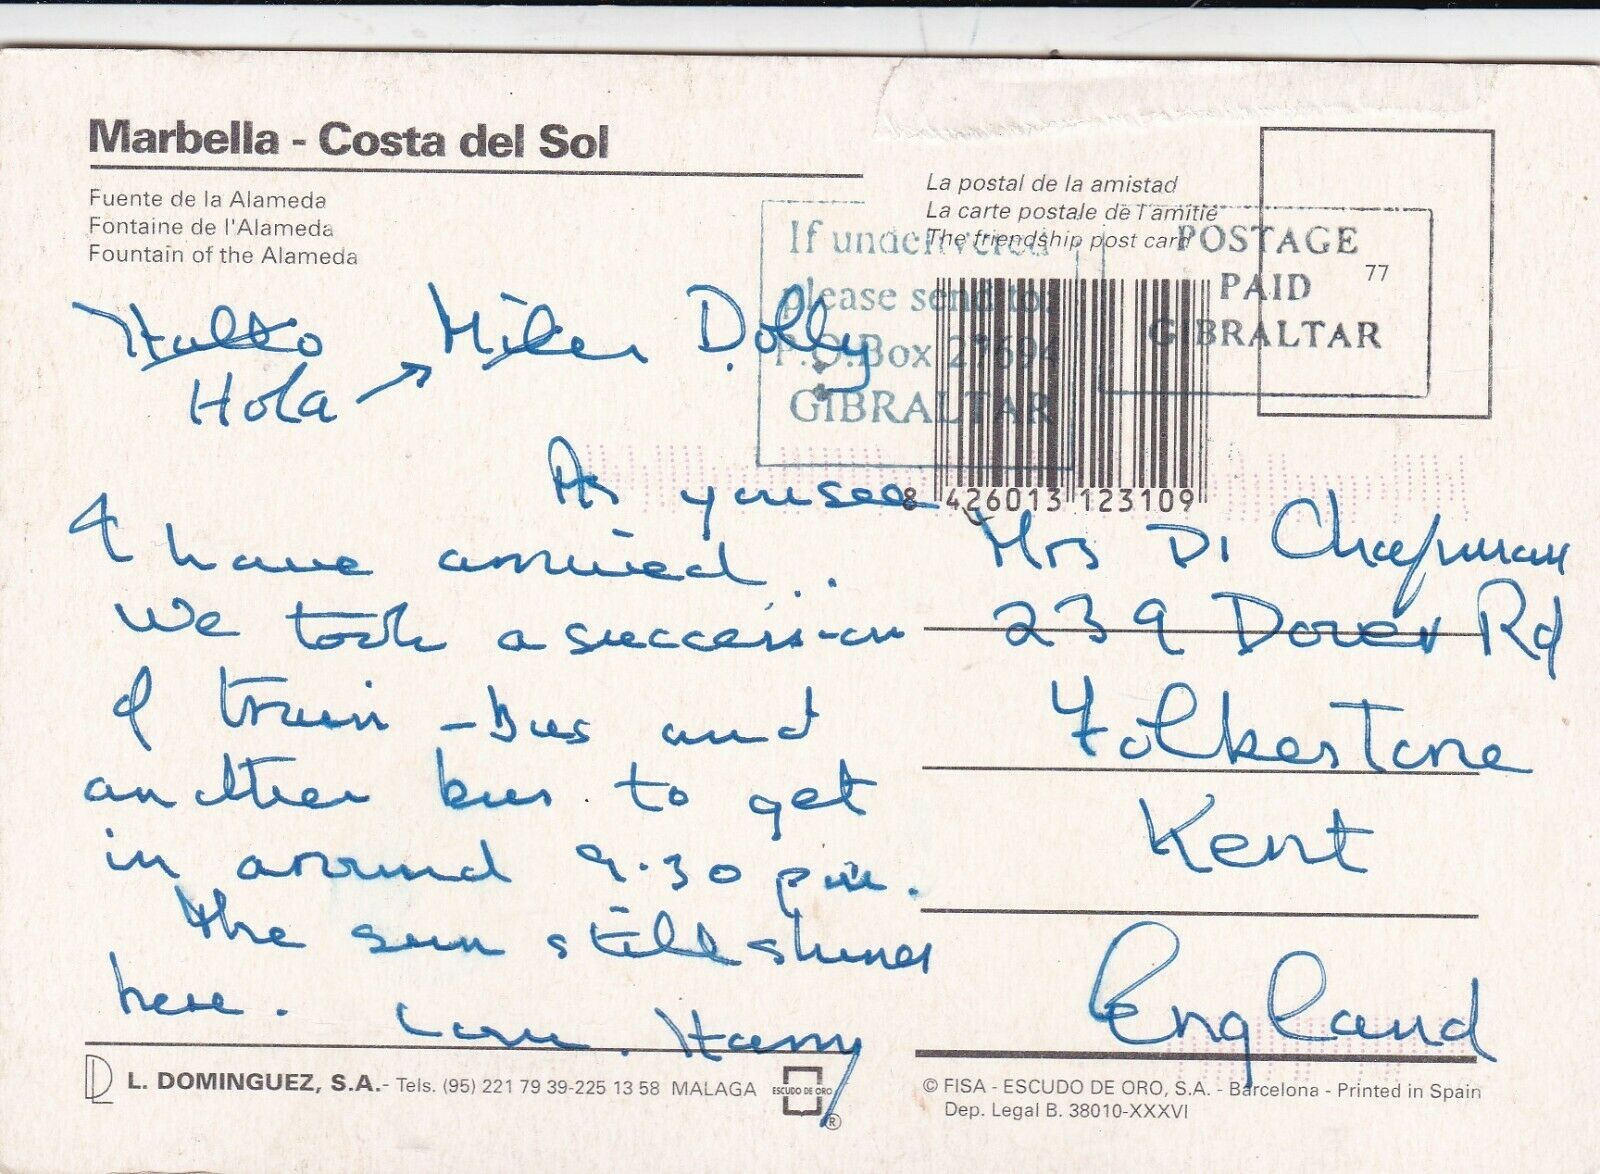 Marbella - Costa del Sol
Fuente de la Alameda
Fontaine de l'Alameda
Fountain of the Alameda
La postal de la amistad
La carte postale de l'amitié
The friendship post card
If undelivered
please send to:
P.O.Box
GIBRALTAR
POSTAGE
PAID
GIBRALTAR
77
8 426013 123109
Hullo Dolly
Hola →
As you see
I have arrived..
We took a succession
of train - bus and
another bus to get
in around 9.30 pm.
The sun still shines
here. Love. Harry
Mrs Di Chapman
239 Dover Rd
Folkestone
Kent
England
L. DOMINGUEZ, S.A.- Tels. (95) 221 79 39-225 13 58 MALAGA
ESCUDO DE ORO
®
© FISA - ESCUDO DE ORO, S.A. - Barcelona - Printed in Spain
Dep. Legal B. 38010-XXXVI